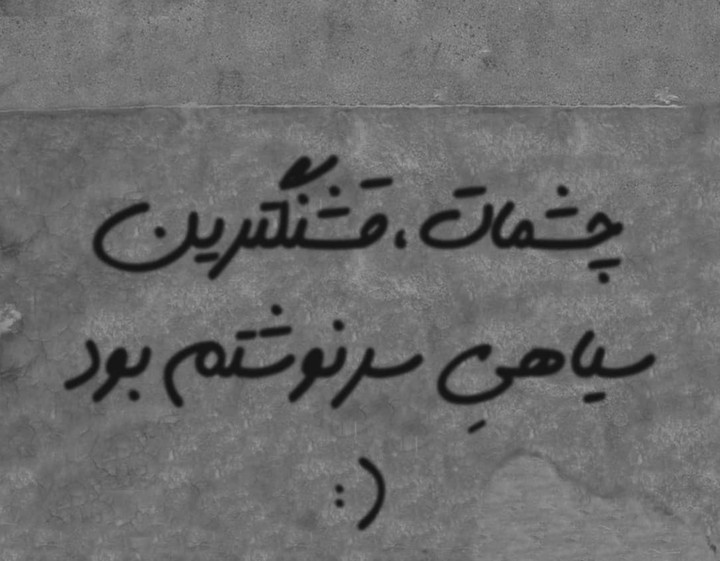 چشمات ،قشنگترین
سیاهیِ سرنوشتم بود
:)